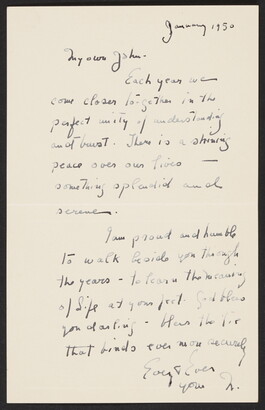 January 1950
My own John-
Each year we
come closer together in the
perfect unity of understanding
and trust. There is a shining
peace over our lives —
something splendid and
serene.
I am proud and humble
to walk beside you through
the years - to learn the meaning
of Life at your feet. God bless
you darling - bless the tie
that binds ever more securely
Ever & Ever
your